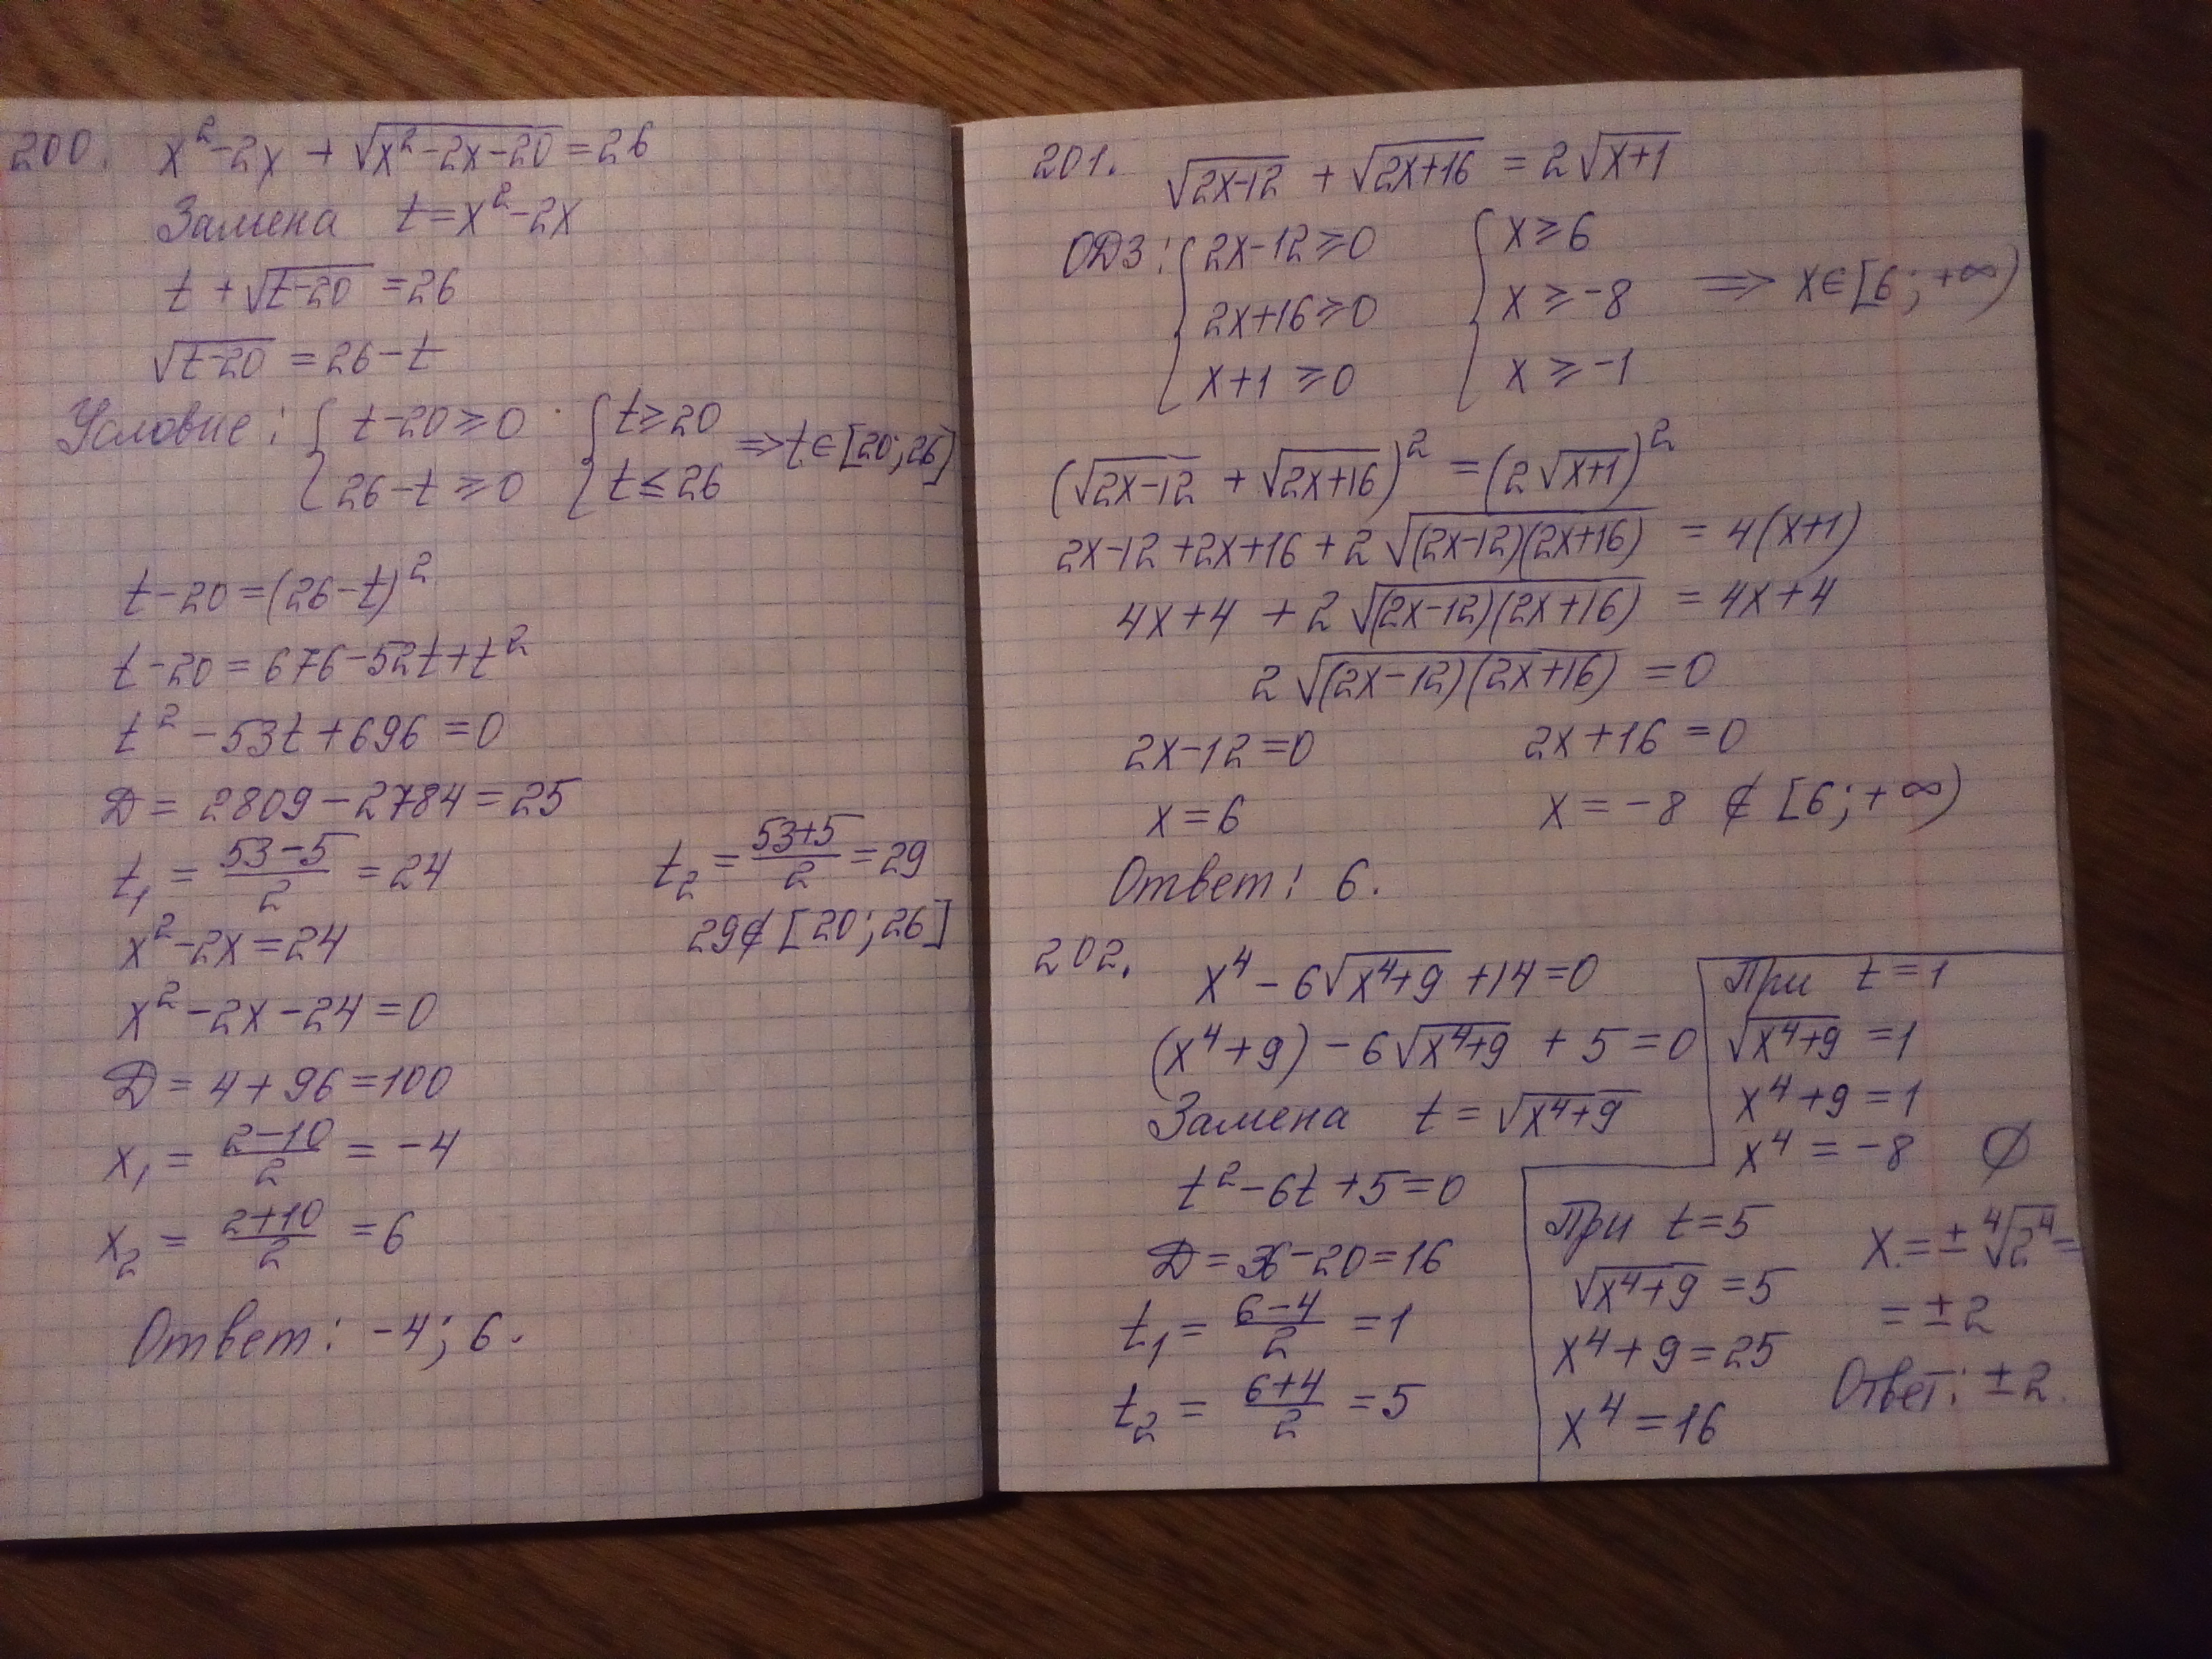 200. x²-2x + √(x²-2x-20) = 26
Замена t = x²-2x
t + √(t-20) = 26
√(t-20) = 26-t
Условие: { t-20 ≥ 0 { t ≥ 20 ⇒ t ∈ [20; 26]
26-t ≥ 0 t ≤ 26
t-20 = (26-t)²
t-20 = 676-52t+t²
t²-53t+696 = 0
D = 2809-2784 = 25
t₁ = (53-5)/2 = 24 t₂ = (53+5)/2 = 29
29 ∉ [20; 26]
x²-2x = 24
x²-2x-24 = 0
D = 4+96 = 100
x₁ = (2-10)/2 = -4
x₂ = (2+10)/2 = 6
Ответ: -4; 6.
201. √(2x-12) + √(2x+16) = 2√(x+1)
ОДЗ: { 2x-12 ≥ 0 { x ≥ 6
2x+16 ≥ 0 x ≥ -8 ⇒ x ∈ [6; +∞)
x+1 ≥ 0 x ≥ -1
(√(2x-12) + √(2x+16))² = (2√(x+1))²
2x-12+2x+16+2√((2x-12)(2x+16)) = 4(x+1)
4x+4 + 2√((2x-12)(2x+16)) = 4x+4
2√((2x-12)(2x+16)) = 0
2x-12 = 0 2x+16 = 0
x = 6 x = -8 ∉ [6; +∞)
Ответ: 6.
202. x⁴-6√(x⁴+9)+14 = 0
(x⁴+9)-6√(x⁴+9)+5 = 0
Замена t = √(x⁴+9)
t²-6t+5 = 0
D = 36-20 = 16
t₁ = (6-4)/2 = 1
t₂ = (6+4)/2 = 5
При t = 1
√(x⁴+9) = 1
x⁴+9 = 1
x⁴ = -8 ∅
При t = 5
√(x⁴+9) = 5
x⁴+9 = 25
x⁴ = 16
x = ±⁴√(2⁴) =
= ±2
Ответ: ±2.